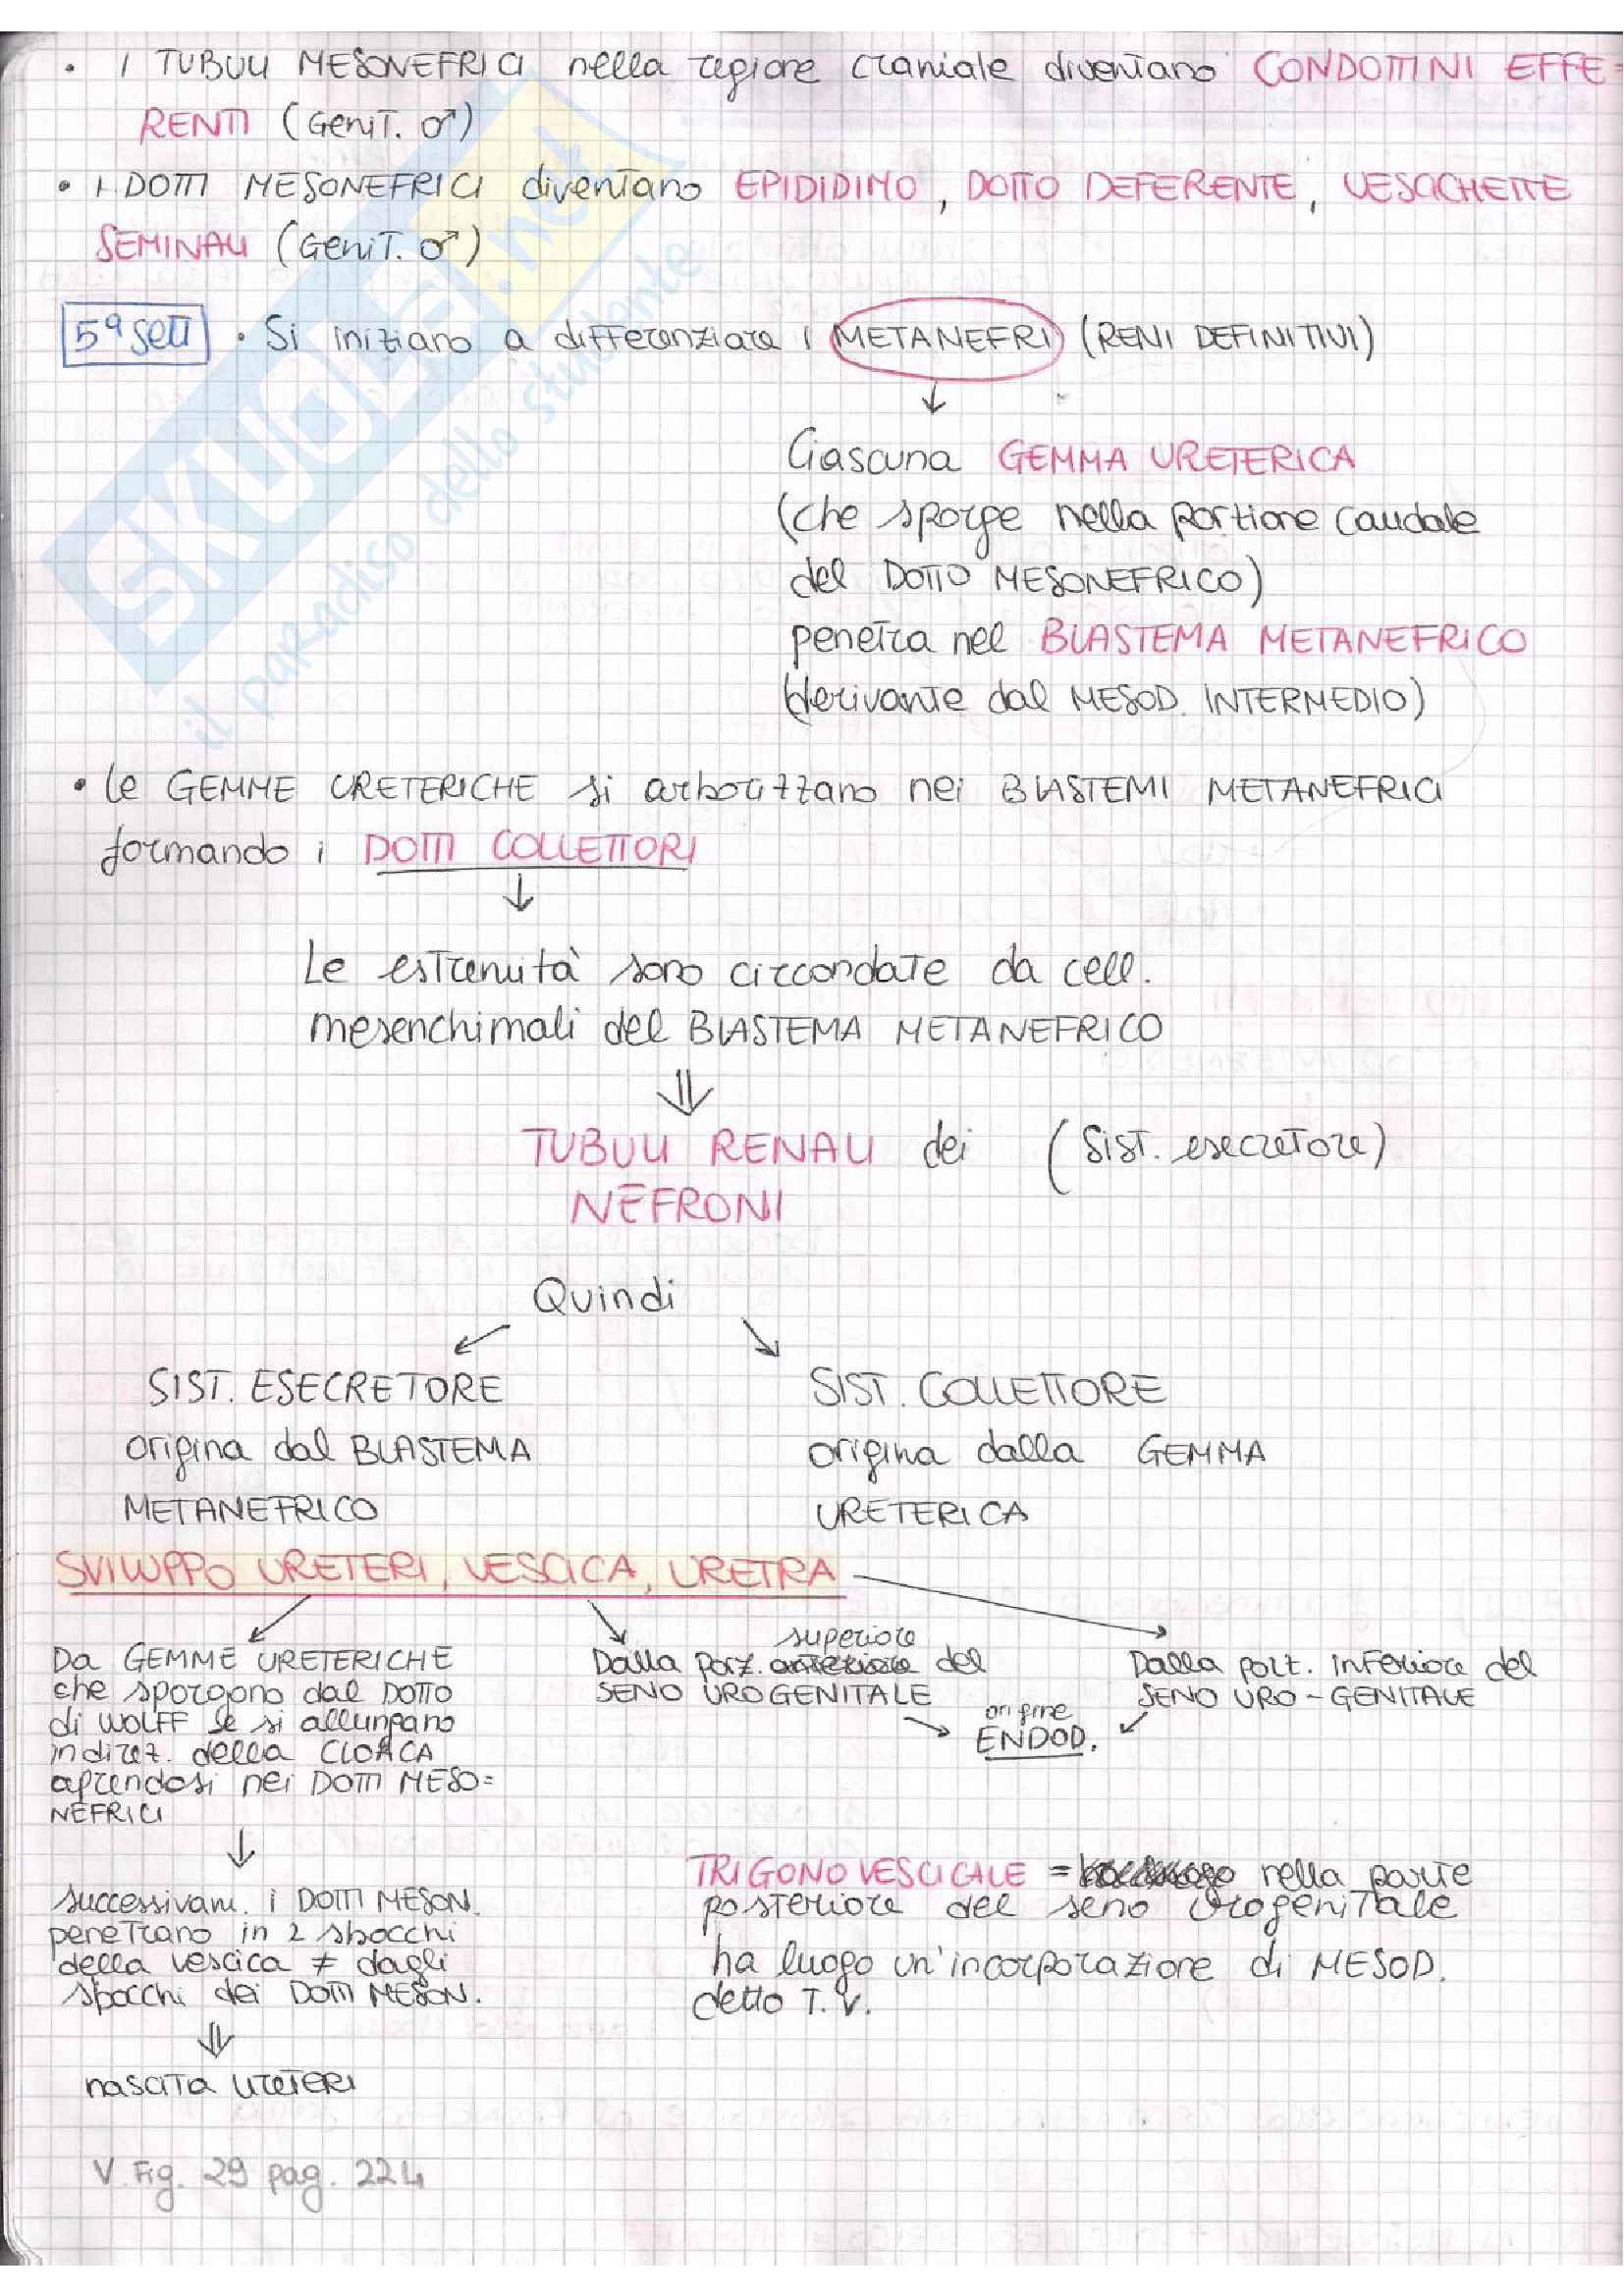 • I TUBULI MESONEFRICI nella regione craniale diventano CONDOTTINI EFFE=
RENTI (GENIT. ♂)
• I DOTTI MESONEFRICI diventano EPIDIDIMO, DOTTO DEFERENTE, VESCICHETTE
SEMINALI (GENIT. ♂)
5ª sett • Si iniziano a differenziare i METANEFRI (RENI DEFINITIVI)
↓
Ciascuna GEMMA URETERICA
(che sporge nella portione caudale
del DOTTO MESONEFRICO)
penetra nel BLASTEMA METANEFRICO
(derivante dal MESOD. INTERMEDIO)
• Le GEMME URETERICHE si arborizzano nei BLASTEMI METANEFRICI
formando i DOTTI COLLETTORI
↓
Le estremità sono circondate da cell.
mesenchimali del BLASTEMA METANEFRICO
⇓
TUBULI RENALI dei (Sist. esecretore)
NEFRONI
Quindi
SIST. ESECRETORE
origina dal BLASTEMA
METANEFRICO
SIST. COLLETTORE
origina dalla GEMMA
URETERICA
SVILUPPO URETERI, VESCICA, URETRA
Da GEMME URETERICHE
che sporgono dal DOTTO
di WOLFF se si allungano
in direz. della CLOACA
aprendosi nei DOTTI MESO=
NEFRICI
↓
successivam. i DOTTI MESON.
penetrano in 2 sbocchi
della vescica ≠ dagli
sbocchi dei DOTTI MESON.
⇓
nascita URETERI
superiore
Dalla porz. anteriore del
SENO UROGENITALE
Dalla port. inferiore del
SENO URO-GENITALE
origine
ENDOD.
TRIGONO VESCICALE = nella parte
posteriore del seno urogenitale
ha luogo un'incorporazione di MESOD.
detto T.V.
V. Fig. 29 pag. 224
SKUOLA.net
il paradiso dello studente